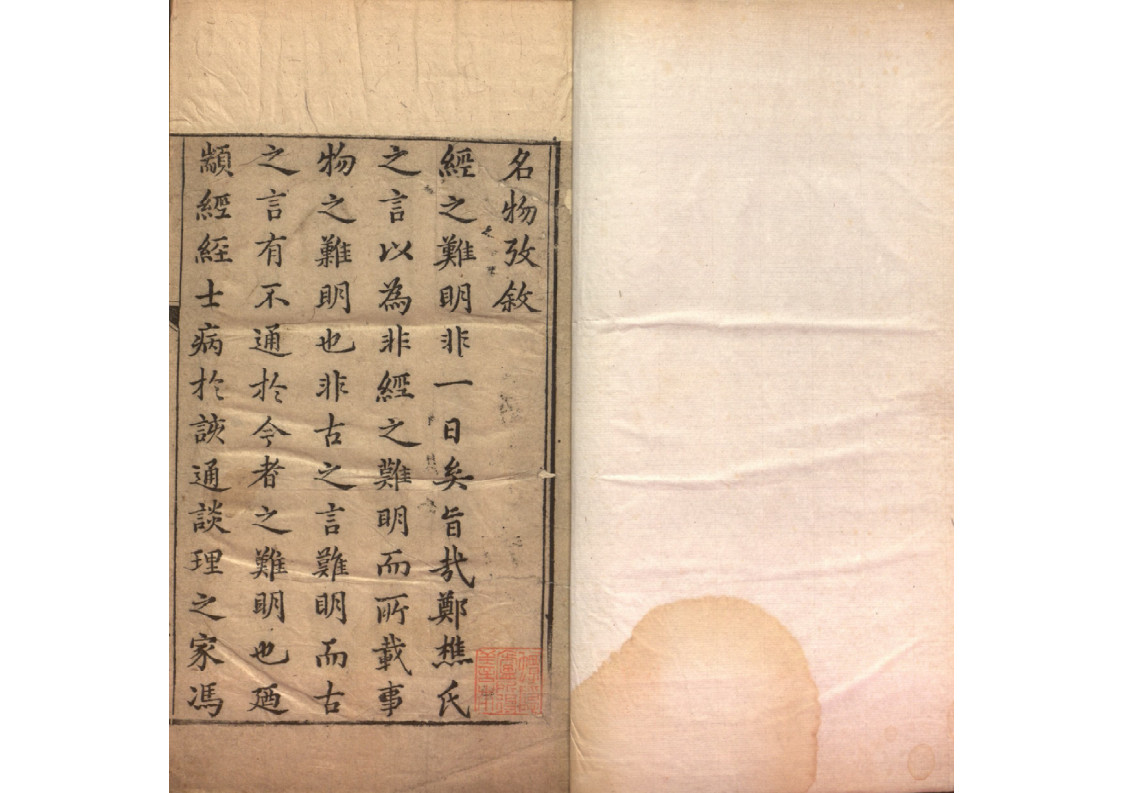 名物攷敘
經之難明非一日矣旨哉鄭樵氏
之言以為非經之難明而所載事
物之難明也非古之言難明而古
之言有不通於今者之難明也廼
顓經經士病於該通談理之家馮